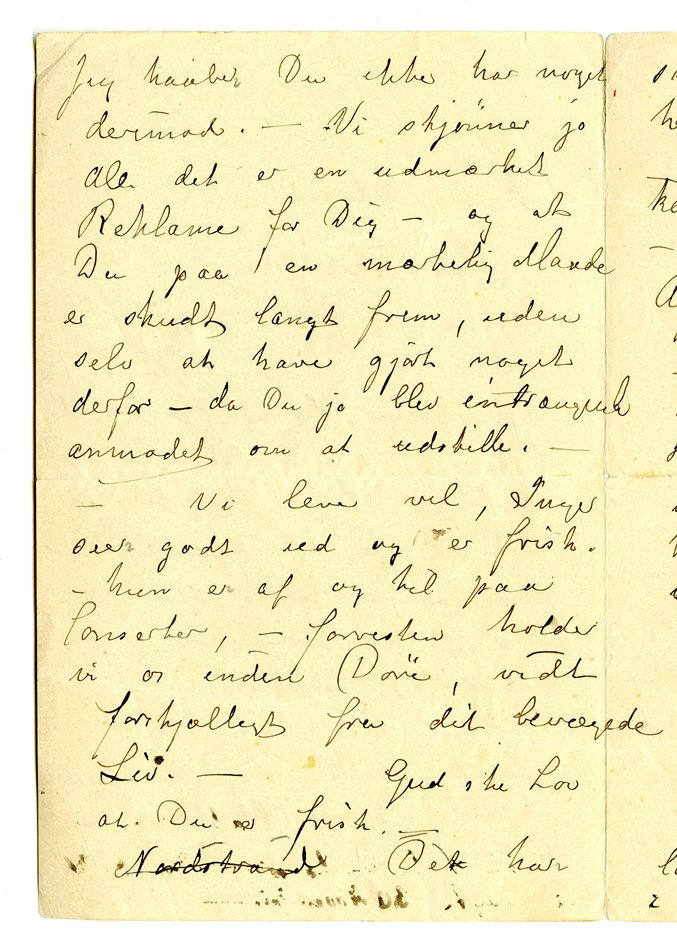 Jeg haaber Du ikke har noget
derimod. — Vi skjønner jo
alle det er en udmærket
Reklame for Dig — og at
Du paa en mærkelig Maade
er skudt langt frem, uden
selv at have gjort noget
derfor — da Du jo blev indtrængende
anmodet om at udstille. —
— Vi leve vel, Inger
seer godt ud og er frisk.
– hun er af og til paa
Conserter, – forresten holder
vi os inden Døre, vidt
forskjælligt fra dit bevægede
Liv. — Gud ske Lov
at Du er frisk. —
Nordstrand Det har